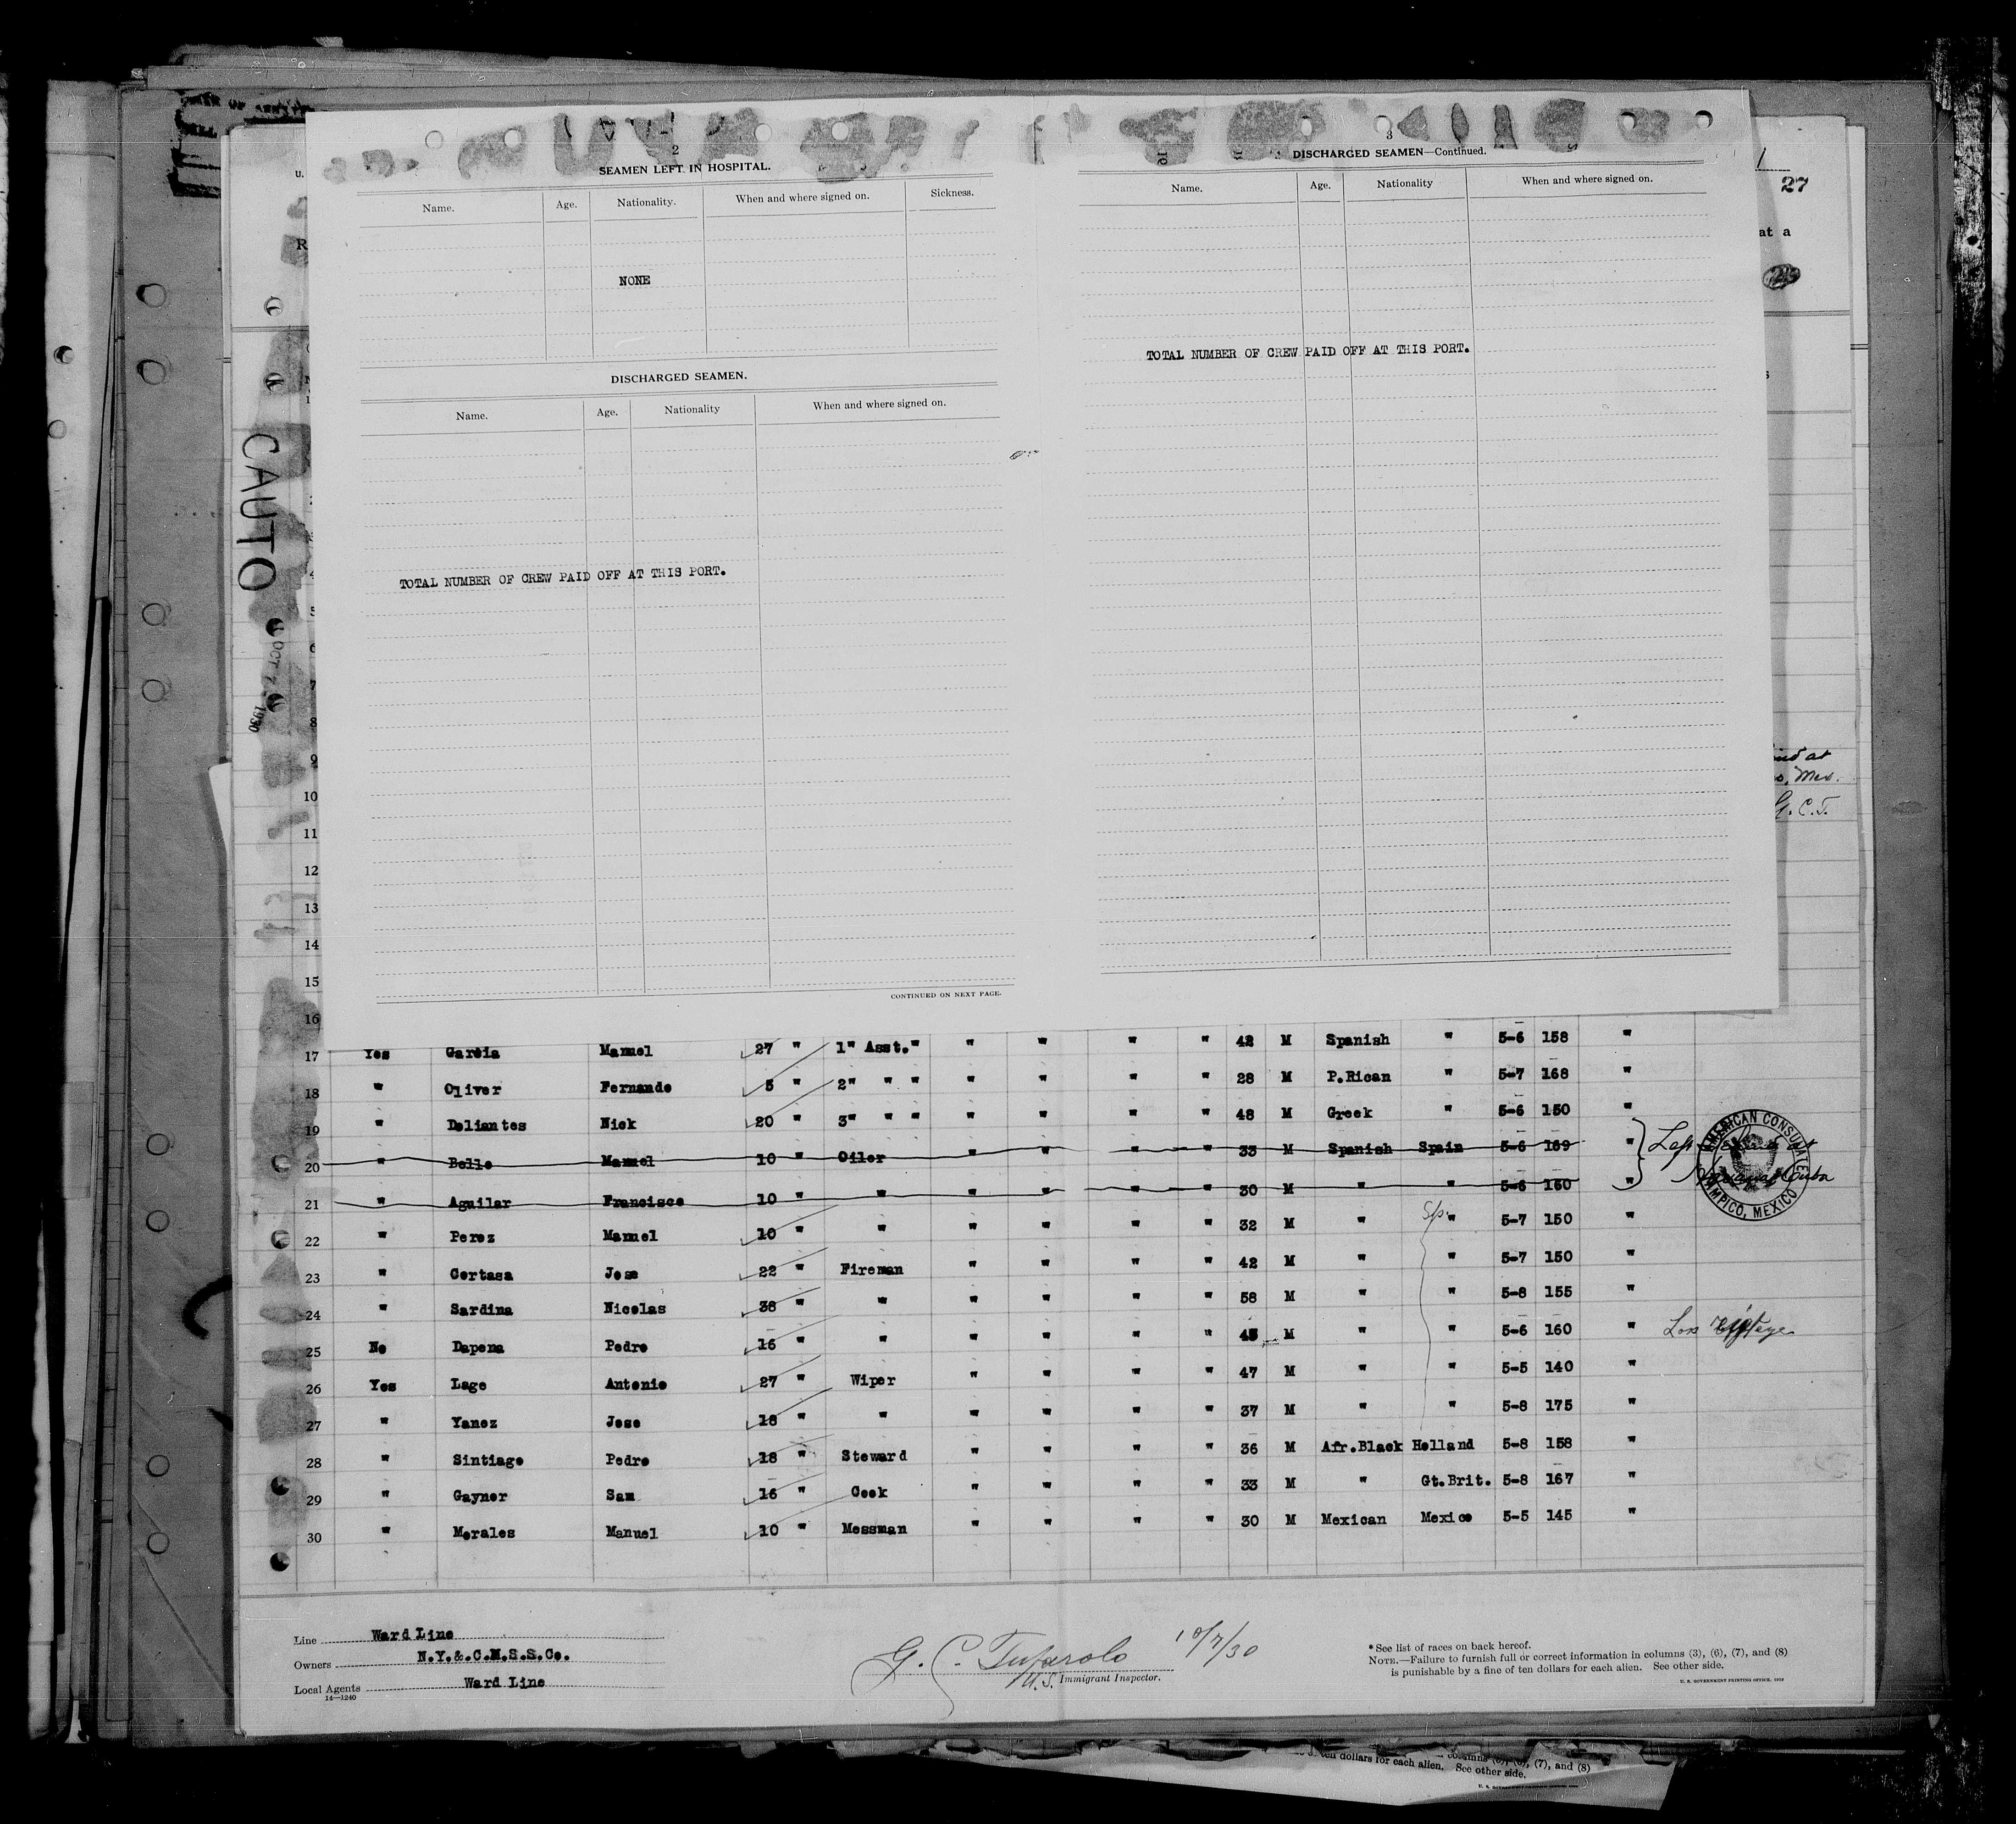 2
SEAMEN LEFT IN HOSPITAL.
Name. Age. Nationality. When and where signed on. Sickness.
NONE
DISCHARGED SEAMEN.
Name. Age. Nationality When and where signed on.
TOTAL NUMBER OF CREW PAID OFF AT THIS PORT.
CONTINUED ON NEXT PAGE.
3
DISCHARGED SEAMEN—Continued.
Name. Age. Nationality When and where signed on.
TOTAL NUMBER OF CREW PAID OFF AT THIS PORT.
U.
R
1
27
at a
25
CAUTO
OCT 1930
ind at
o, Mex.
G. C. T.
4
5
6
7
8
9
10
11
12
13
14
15
16
17 Yes Garcia Manuel 27 " 1" Asst." " " " " 42 M Spanish " 5-6 158 "
18 " Oliver Fernando 5 " 2" " " " " " " 28 M P.Rican " 5-7 168 "
19 " Deliantes Nick 20 " 3" " " " " " " 48 M Greek " 5-6 150 "
20 " Bello Manuel 10 " Oiler " " " " 33 M Spanish Spain 5-6 169 "
21 " Aguilar Francisco 10 " " " " " " 30 M " " 5-6 160 "
Havana, Cuba
AMERICAN CONSULATE
TAMPICO, MEXICO
22 " Perez Manuel 10 " " " " " " 32 M " Sp. " 5-7 150 "
23 " Cortasa Jose 22 " Fireman " " " " 42 M " " 5-7 150 "
24 " Sardina Nicolas 38 " " " " " " 58 M " " 5-8 155 "
25 No Dapena Pedro 16 " " " " " " 45 M " " 5-6 160 "
26 Yes Lage Antonio 27 " Wiper " " " " 47 M " " 5-5 140 "
27 " Yanez Jose 18 " " " " " " 37 M " " 5-8 175 "
28 " Sintiago Pedro 18 " Steward " " " " 36 M Afr.Black Holland 5-8 158 "
29 " Gayner Sam 16 " Cook " " " " 33 M " Gt.Brit. 5-8 167 "
30 " Morales Manuel 10 " Messman " " " " 30 M Mexican Mexico 5-5 145 "
Line Ward Line
Owners N.Y.&.C.M.S.S.Co.
Local Agents Ward Line
14—1240
G. C. Tufarolo 10/7/30
U.S. Immigrant Inspector.
*See list of races on back hereof.
NOTE.—Failure to furnish full or correct information in columns (3), (6), (7), and (8)
is punishable by a fine of ten dollars for each alien. See other side.
U. S. GOVERNMENT PRINTING OFFICE
columns (6), (7), and (8)
ten dollars for each alien. See other side.